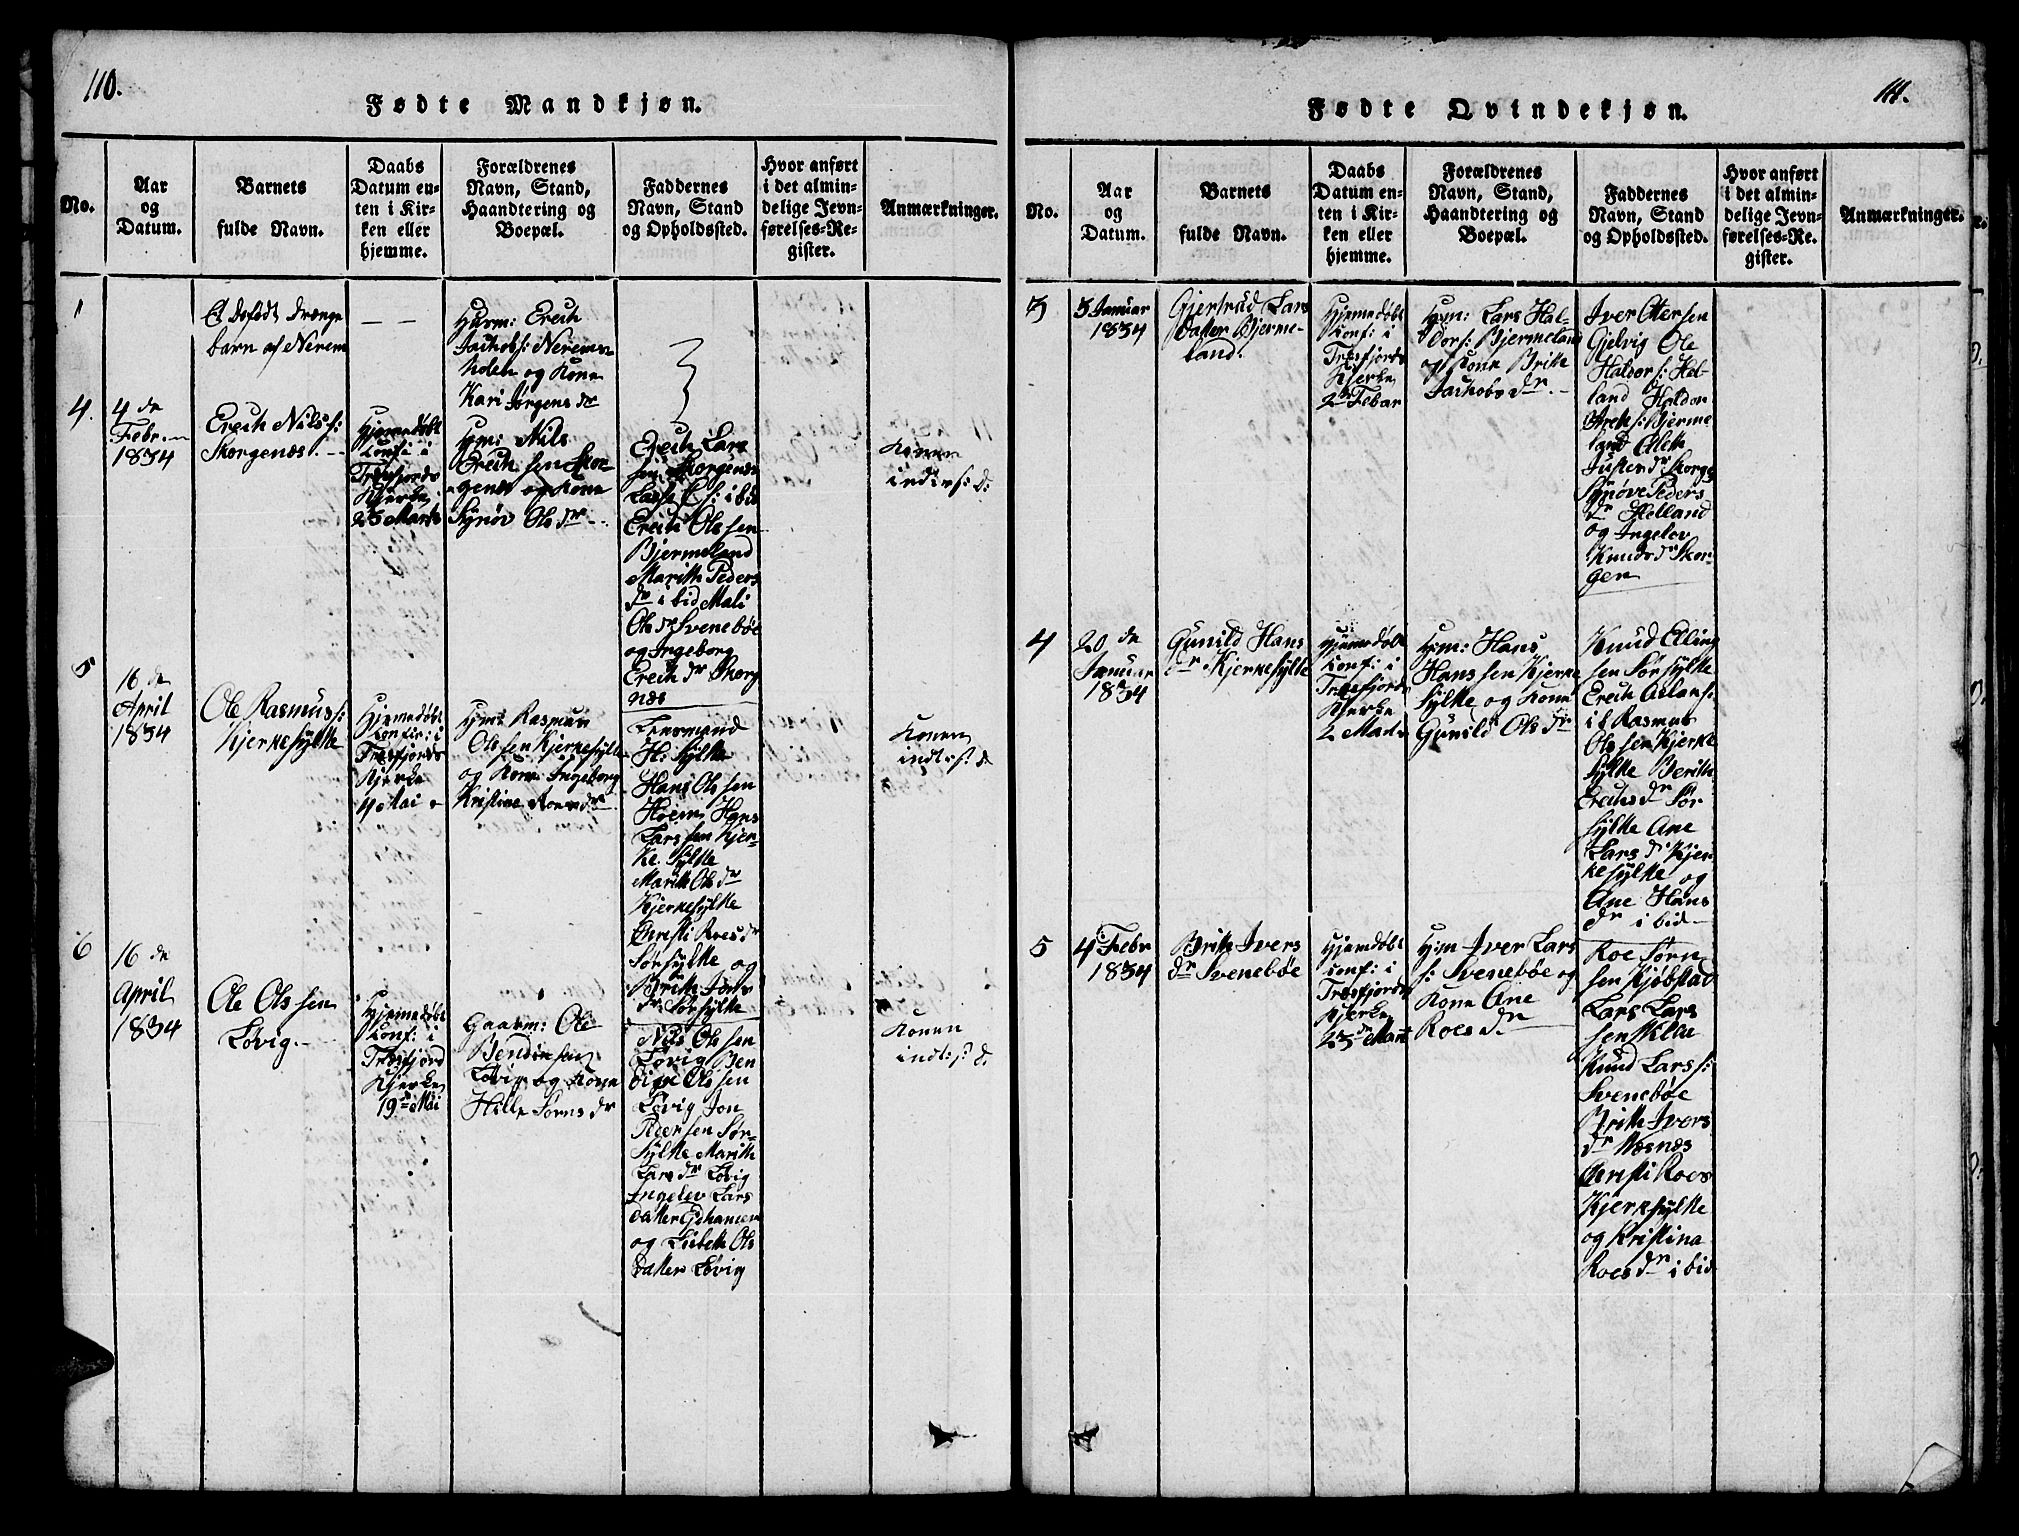 110.
Fødte Mandkjøn.
No.
Aar
og
Datum.
Barnets
fulde Navn.
Daabs
Datum en-
ten i Kir-
ken eller
hjemme.
Forældrenes
Navn, Stand,
Haandtering og
Boepæl.
Faddernes
Navn, Stand
og Opholdssted.
Hvor anført
i det almin-
delige Jevn-
førelses-Re-
gister.
Anmærkninger.
Et døfødt drænge
barn af Nerem
— —
Huvm: Erech
Jachobs: Nerems-
holen og Kone
Kari Jørgens dr
4.
4 de
Febr.
1834
Erech Nils s:
Skorgenæs.
Hjemmedøbt
Konf: i
Træsfjords
Kjerke
23 Marts
Hm: Nils
Erech sen Skor
genæs og Kone
Synøv Ols dr
Erech Lars
sen Skorgenæs
Lars E s: i bid
Erech Ols sen
Bjermeland
Marith Peders
dr i bid Mali
Ols dr Svenebøe
og Ingeborg
Erech dr Skorg
næs
Konen
indl: s: d:
5
16 de
April
1834
Ole Rasmus s:
Kjerkesylte
Hjemmedøbt
Konfir: i
Træsfjords
Kjerke
4 Mai
Hm: Rasmus
Ols sen Kjerkesylte
og Kone Ingeborg
Kristine Roes dr
Lensmand
H: Sylte
Hans Ols sen
Hoem Hans
Lars sen Kjer-
ke Sylte
Marith Ols dr
Kjerkesylte
Christi Roes dr
Sørsylte og
Brith Jons
dr Sørsylte
Konen
indl: s: d
6
16 de
April
1834
Ole Ols sen
Løvig
Hjemmedøbt
Konf: i
Træsfjord
Kjerke
19 de Mai
Gaarm: Ole
Bendix sen
Løvig og Kone
Hille Sørns dr
Nils Ols sen
Løvig Ben
dix Ols sen
Løvig Jon
Peder sen Sør-
sylte Marith
Lars dr Løvig
Ingelev Lars
datter
og Lisbeth Ols
datter Løvig
Konen
indl: s: d.
111.
Fødte Qvindekjøn.
No.
Aar
og
Datum.
Barnets
fulde Navn.
Daabs
Datum en-
ten i Kir-
ken eller
hjemme.
Forældrenes
Navn, Stand,
Haandtering og
Boepæl.
Faddernes
Navn, Stand
og Opholdssted.
Hvor anført
i det almin-
delige Jevn-
førelses-Re-
gister.
Anmærkninger.
3
3 Januar
1834
Gjertrud Lars
datter Bjerme-
land.
Hjemmedøbt
Konf: i
Træsfjords
Kjerke
2 Febar
Hm: Lars Hal-
dors: Bjermeland
og Kone Brith
Jachobs dr
Iver Otter sen
Gjelvig Ole
Haldor s: Hel-
land Haldor
Arch s: Bjerme
land Aleth
Justen dr Skorge
Synøve Peders
dr Helland
og Ingelev
Knuds dr Skor-
gen
4
20 de
Januar
1834
Gunild Hans
dr Kjerkesylte
Hjemmedøbt
Konf: i
Træsfjords
Kjerke
2 Mads
Hm: Hans
Hans sen Kjerke
sylte og Kone
Gunild Ols dr
Knud Elling
sen Sørsylte
Erech Aslans:
i b Rasmus
Ols sen Kjerke
Sylte Berith
Erechs dr Sør
sylte Ane
Lars dr Kjer
kesylte og
Ane Hans
dr i bid
5
4 Febr
1834
Brith Ivers
dr Svenebøe
Hjemdøbt
Conf: i
Træsfjords
Kjerke
23 de Mart
Hm Iver Lars
s: Svenebøe og
Kone Ane
Roes dr
Roe Sørn
sen Kjøbstad
Lars Lars
sen Mklæ
Knud Lars s:
Svenebøe
Brith Ivers
dr Næsnæs
Christi Roes
Kjerkesylte
og Kristina
Roes dr i bid